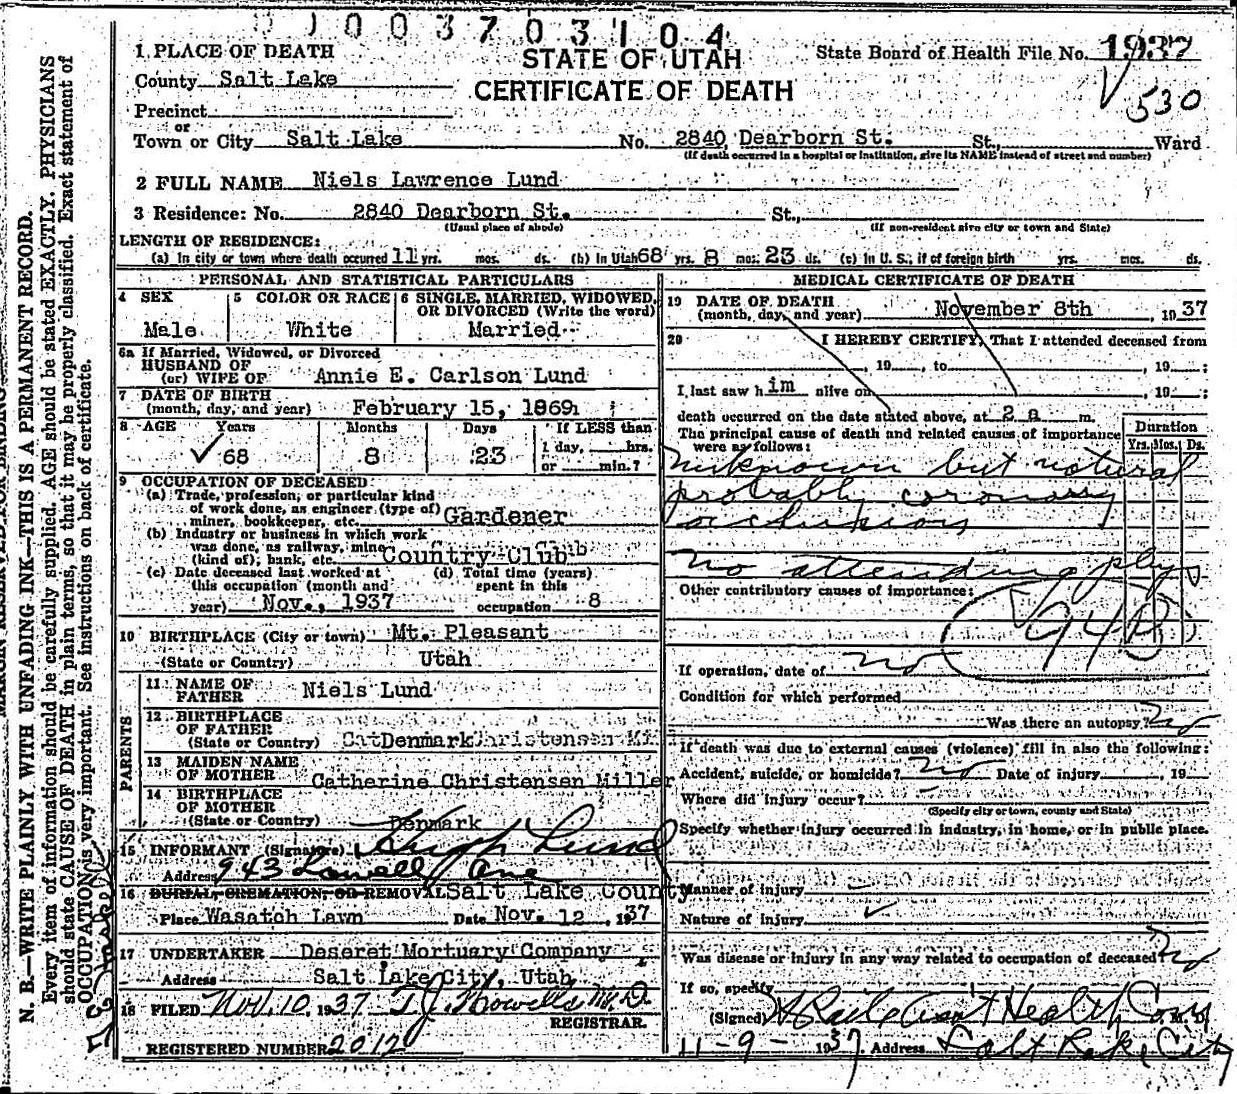 003703104
1 PLACE OF DEATH
STATE OF UTAH
CERTIFICATE OF DEATH
State Board of Health File No. 1937
530
County Salt Lake
Precinct
or
Town or City Salt Lake No. 2840 Dearborn St. St., Ward
(If death occurred in a hospital or institution, give its NAME instead of street and number)
2 FULL NAME Niels Lawrence Lund
3 Residence: No. 2840 Dearborn St. St.,
(Usual place of abode) (If non-resident give city or town and State)
LENGTH OF RESIDENCE:
(a) In city or town where death occurred 11 yrs. mos. ds. (b) In Utah 68 yrs. 8 mos. 23 ds. (c) In U. S., if of foreign birth yrs. mos. ds.
PERSONAL AND STATISTICAL PARTICULARS
4 SEX Male
5 COLOR OR RACE White
6 SINGLE, MARRIED, WIDOWED, OR DIVORCED (Write the word) Married
6a If Married, Widowed, or Divorced
HUSBAND OF
(or) WIFE OF Annie E. Carlson Lund
7 DATE OF BIRTH
(month, day, and year) February 15, 1869
8 AGE Years Months Days If LESS than
1 day, hrs.
68 8 23 or min.?
9 OCCUPATION OF DECEASED
(a) Trade, profession, or particular kind
of work done, as engineer (type of)
miner, bookkeeper, etc. Gardener
(b) Industry or business in which work
was done, as railway, mine
(kind of); bank, etc. Country Club
(c) Date deceased last worked at
this occupation (month and
year) Nov., 1937
(d) Total time (years)
spent in this
occupation 8
10 BIRTHPLACE (City or town) Mt. Pleasant
(State or Country) Utah
PARENTS
11 NAME OF
FATHER Niels Lund
12 BIRTHPLACE
OF FATHER
(State or Country) Denmark
13 MAIDEN NAME
OF MOTHER Catherine Christensen Miller
14 BIRTHPLACE
OF MOTHER
(State or Country) Denmark
15 INFORMANT (Signature) Hugh Lund
Address 943 Lowell Ave
16 BURIAL, CREMATION, OR REMOVAL Salt Lake County
Place Wasatch Lawn Date Nov. 12, 1937
17 UNDERTAKER Deseret Mortuary Company
Address Salt Lake City, Utah
18 FILED Nov. 10, 1937 T. J. Howells M.D.
REGISTRAR.
REGISTERED NUMBER 2012
MEDICAL CERTIFICATE OF DEATH
19 DATE OF DEATH
(month, day, and year) November 8th, 1937
20 I HEREBY CERTIFY, That I attended deceased from
, 19 , to , 19 ;
I last saw him alive on , 19 ;
death occurred on the date stated above, at 2 a m.
The principal cause of death and related causes of importance
were as follows:
Duration
Yrs. Mos. Ds.
unknown but natural
probably coronary
occlusion
No attending phys
Other contributory causes of importance:
94B
If operation, date of no
Condition for which performed
Was there an autopsy? No
If death was due to external causes (violence) fill in also the following:
Accident, suicide, or homicide? no Date of injury , 19
Where did injury occur?
(Specify city or town, county and State)
Specify whether injury occurred in industry, in home, or in public place.
Manner of injury
Nature of injury
Was disease or injury in any way related to occupation of deceased? No
If so, specify
(Signed) Asst Health Com M. D.
11-9- 1937 Address Salt Lake City
MARGIN RESERVED FOR BINDING
N. B.—WRITE PLAINLY WITH UNFADING INK—THIS IS A PERMANENT RECORD.
Every item of information should be carefully supplied. AGE should be stated EXACTLY. PHYSICIANS
should state CAUSE OF DEATH in plain terms, so that it may be properly classified. Exact statement of
OCCUPATION is very important. See instructions on back of certificate.